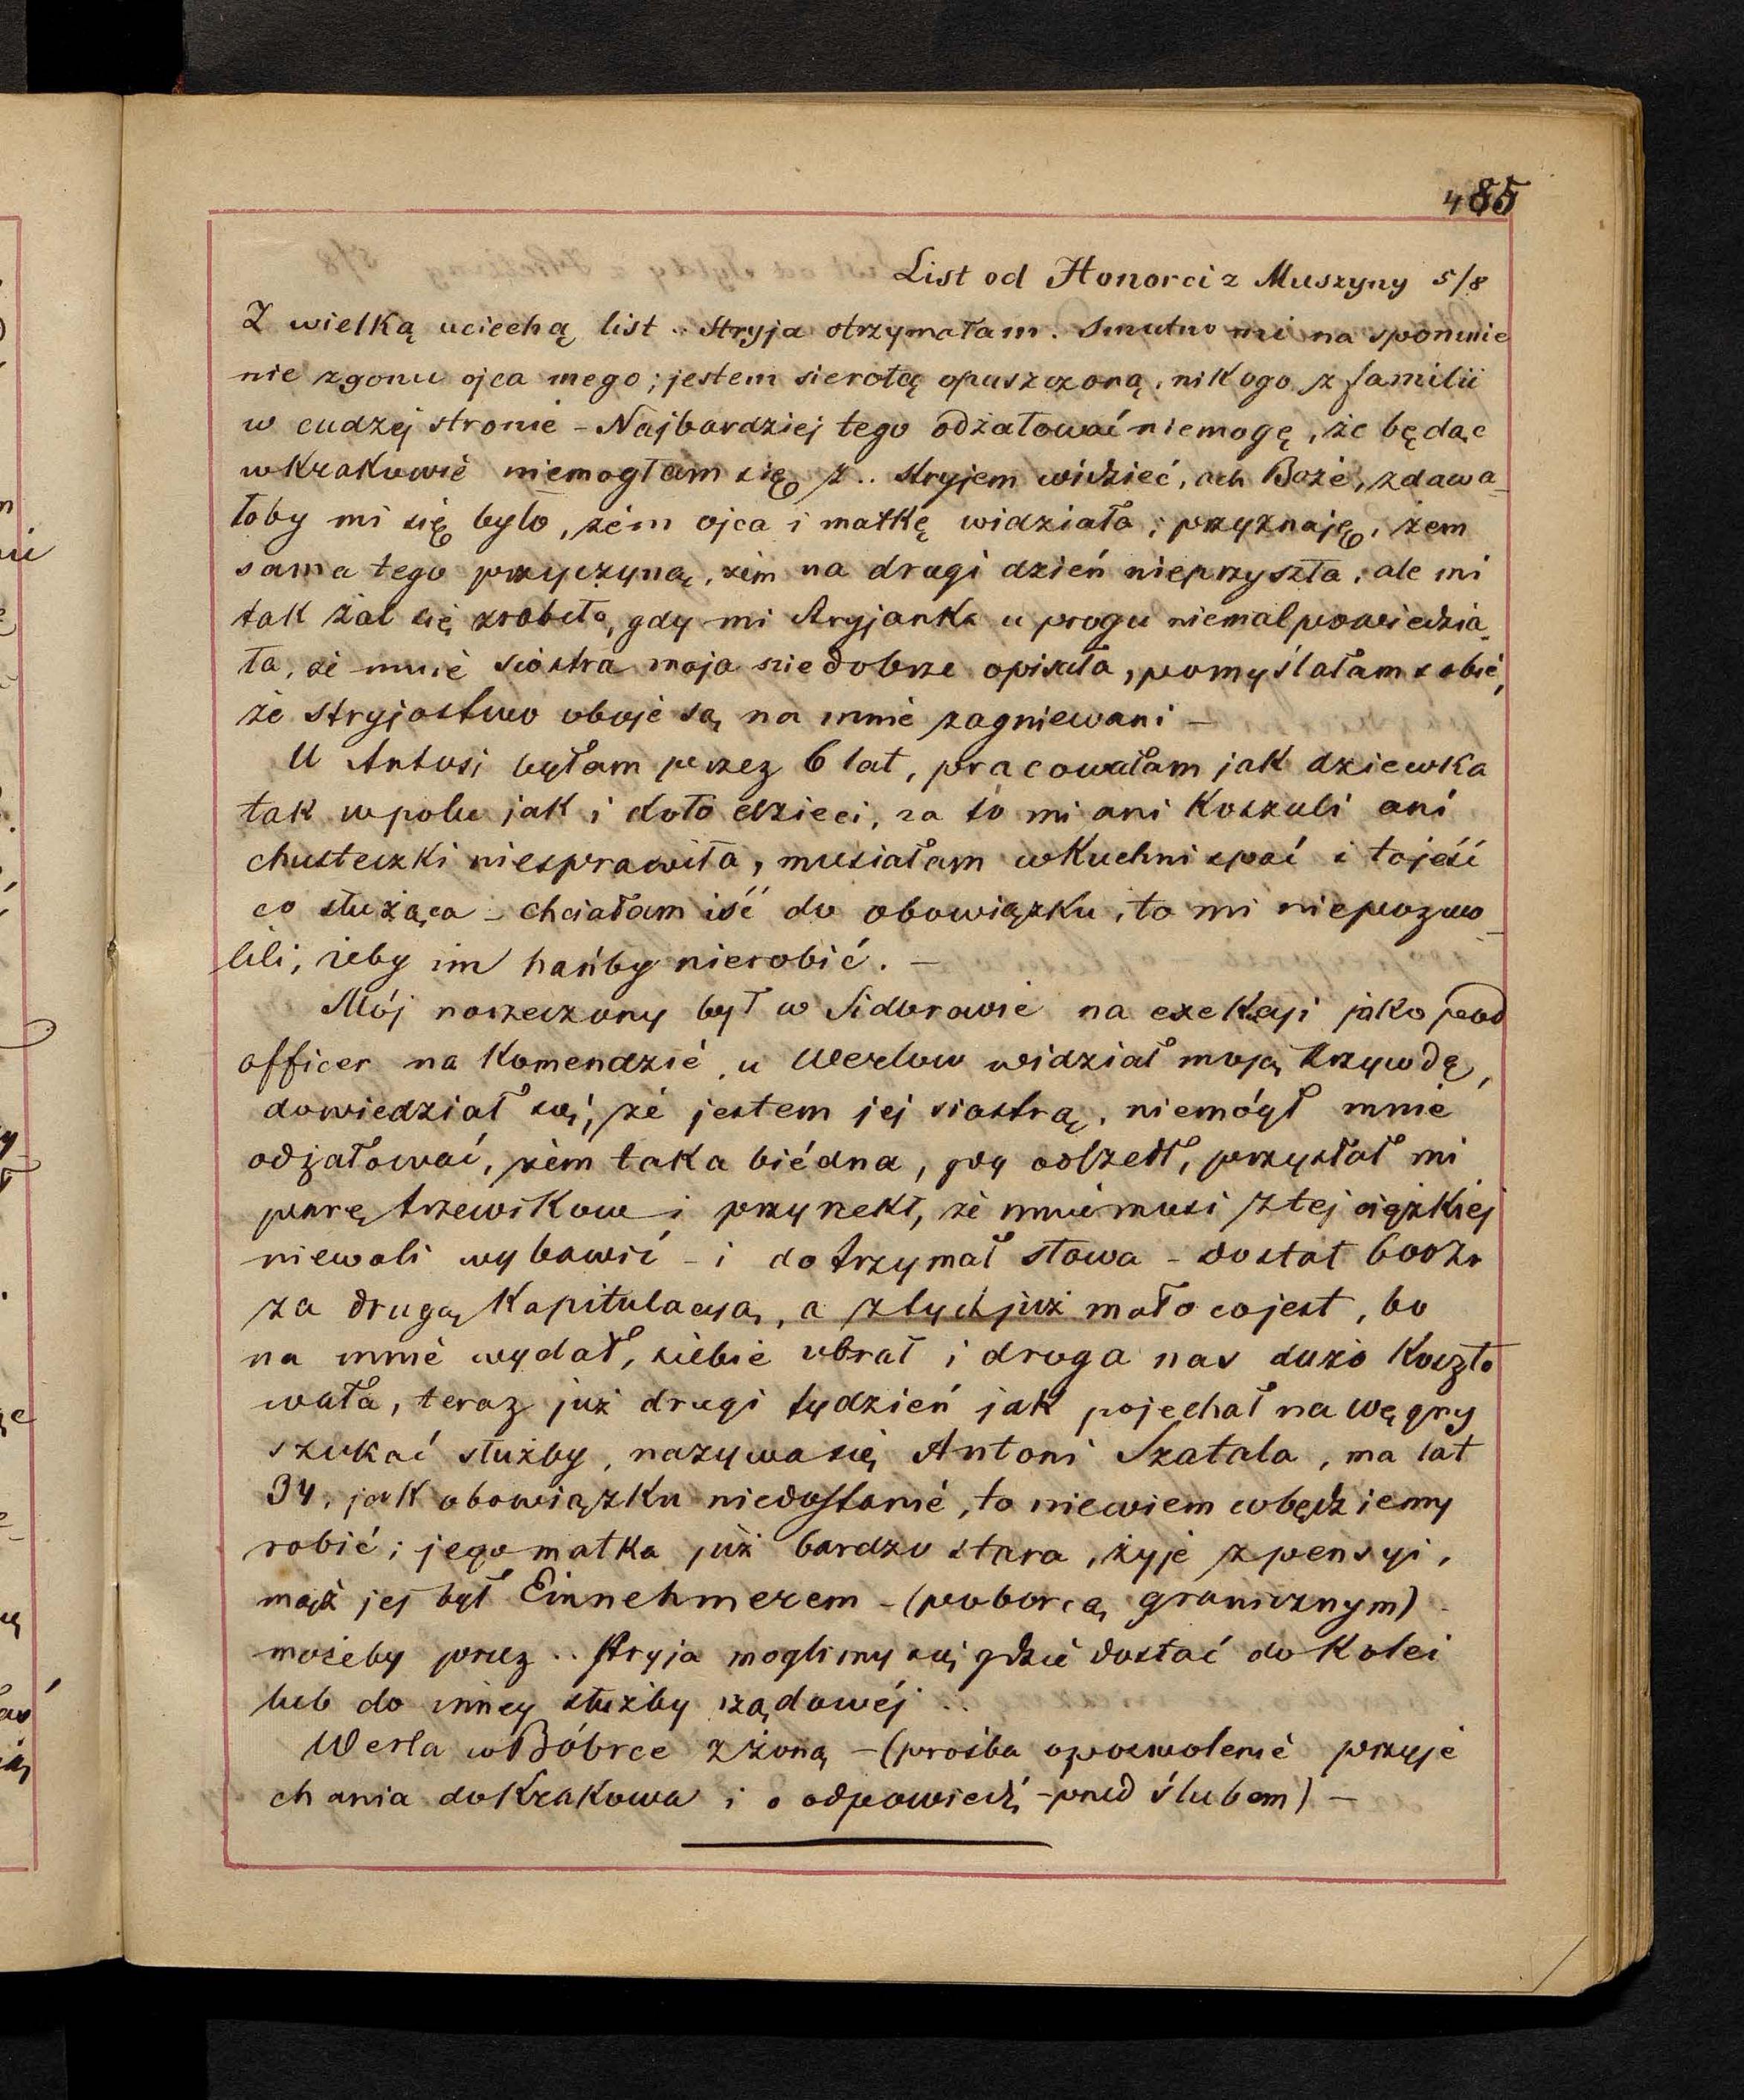 485
List od Honorci z Muszyny 5/8
Z wielką uciechą list .. Stryja otrzymałam. Smutno mi na spomnie
nie zgonu ojca mego; jestem sierotą opuszczoną, nikogo z familii
w cudzej stronie - Najbardziej tego odżałować niemogę, że będąc
w Krakowie niemogłam się z .. Stryjem widzieć, ach Boże, zdawa-
łoby mi się było, żem ojca i matkę widziała; przyznaję, żem
sama tego przyczyną, żem na drugi dzień nieprzyszła, ale mi
tak żal się zrobiło, gdy mi Stryjanka u progu niemal powiedzia-
ła, że mnie siostra moja niedobrze opisała, pomyślałam sobie,
że stryjostwo oboje są na mnie zagniewani -
U Antosi byłam przez 6 lat, pracowałam jak dziewka
tak w polu jak i koło dzieci, za to mi ani koszuli ani
chusteczki niesprawiła, musiałam w kuchni spać i to jeść
co służąca - chciałam iść do obowiązku, to mi niepozwo-
lili, żeby im hańby nierobić. -
Mój narzeczony był w Sidorowie na exekcyi jako pod
officer na komendzie, u Werlów widział moją krzywdę,
dowiedział się, że jestem jej siostrą, niemógł mnie
odżałować, żem taka biédna, gdy odszedł, przysłał mi
parę trzewików i przyrzekł, że mnie musi z tej ciężkiej
niewoli wybawić - i dotrzymał słowa - dostał 600 Zr
za drugą kapitulacyą, a z tych już mało co jest, bo
na mnie wydał, siebie ubrał i droga nas dużo koszto
wała, teraz już drugi tydzień jak pojechał na Węgry
szukać służby, nazywa się Antoni Szatala, ma lat
34, jak obowiązku niedostanie, to niewiem co będziemy
robić; jego matka już bardzo stara, żyje z pensyi,
mąż jej był Einnehmerem - (poborcą granicznym) -
możeby przez .. Stryja moglimy się gdzie dostać do kolei
lub do innej służby rządowéj ..
Werla w Bóbrce z żoną - (prośba o pozwolenie przyje
chania do Krakowa i o odpowiedź - przed ślubem) -